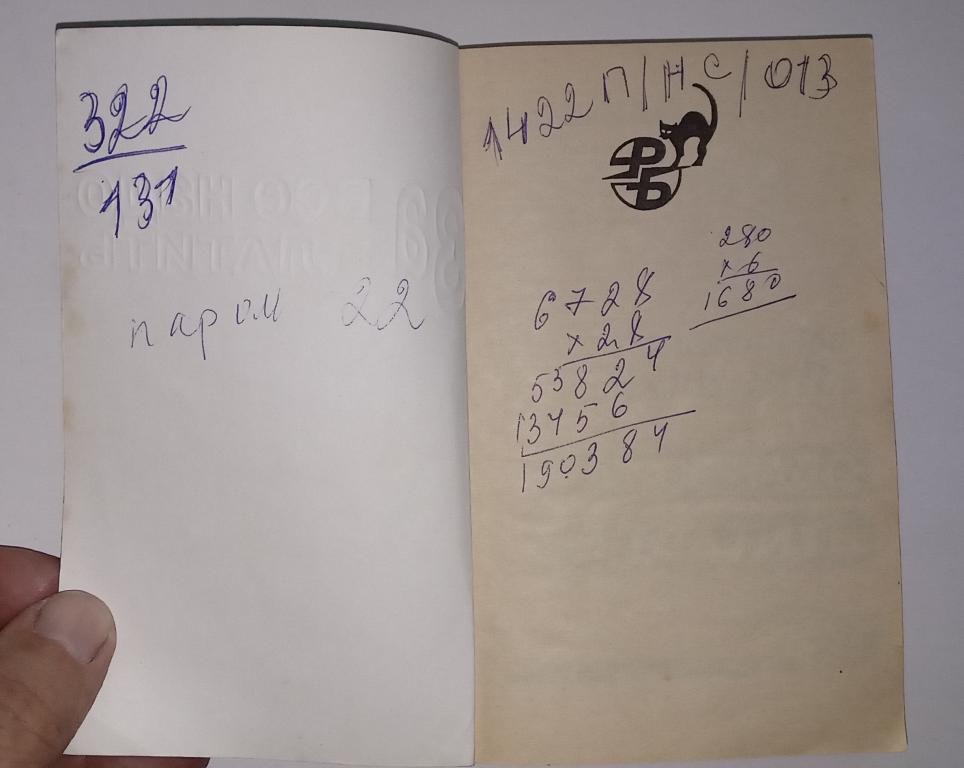 322
131
паром 22
1422 П/НС/013
РБ
280
х 6
1680
6728
х 28
53824
13456
190384